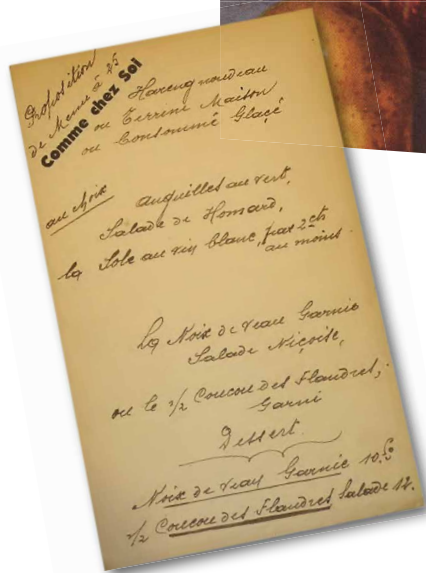 Proposition
de Menu à 25
Comme chez Soi
Hareng nouveau
ou Terrine Maison
ou Consommé Glacé
au choix
anguilles au vert,
Salade de Homard,
la Sole au vin blanc, par 2 cts
au moins.
La Noix de Veau Garnie
Salade Niçoise,
ou le 1/2 Coucou des Flandres,
Garni
Dessert.
Noix de Veau Garnie 10.
1/2 Coucou des Flandres Salade 12.